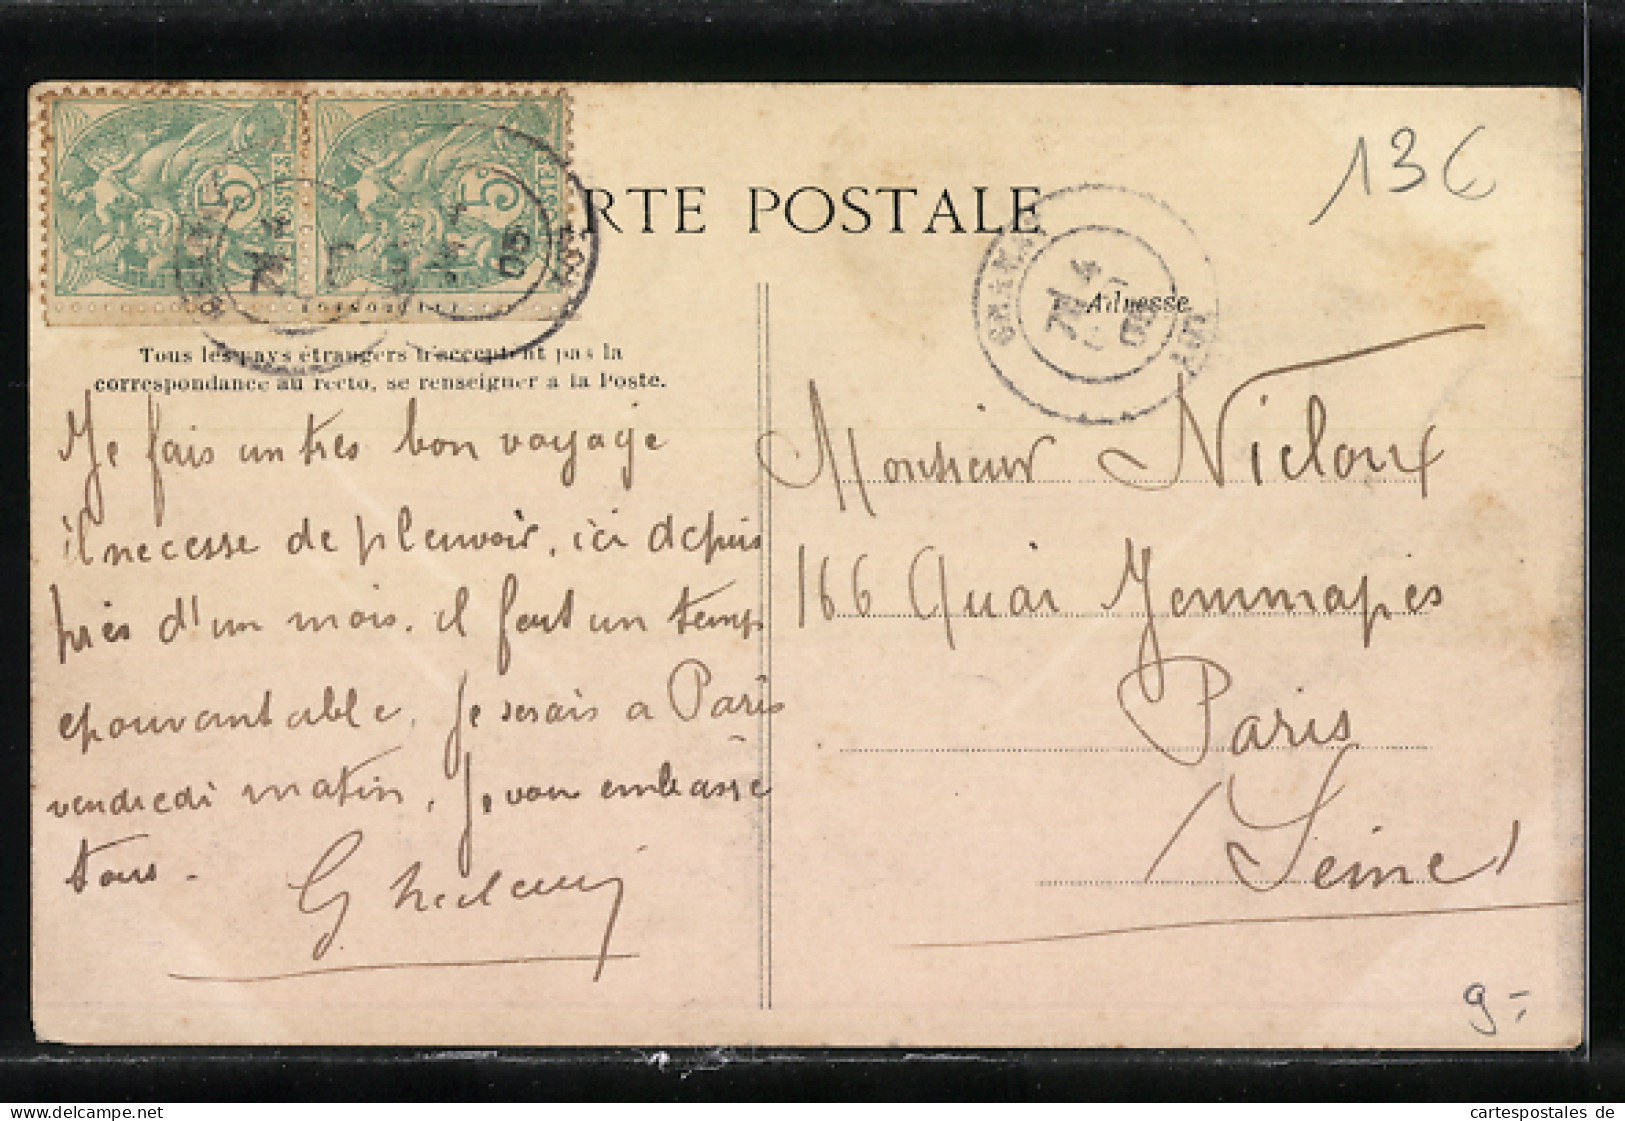 RTE POSTALE
13€
Adresse.
5 5
POSTES POSTES
GRAMAT
7E 4
05
LOT
Tous les pays étrangers n'acceptent pas la
correspondance au recto, se renseigner à la Poste.
Je fais un tres bon voyage
il ne cesse de pleuvoir, ici depuis
près d'un mois. il fait un temps
epouvantable. Je serais a Paris
vendredi matin, Je vous embrasse
tous.
G
Monsieur Nicloux
166 Quai Jemmapes
Paris
Seine
9.-
www.delcampe.net
cartespostales de